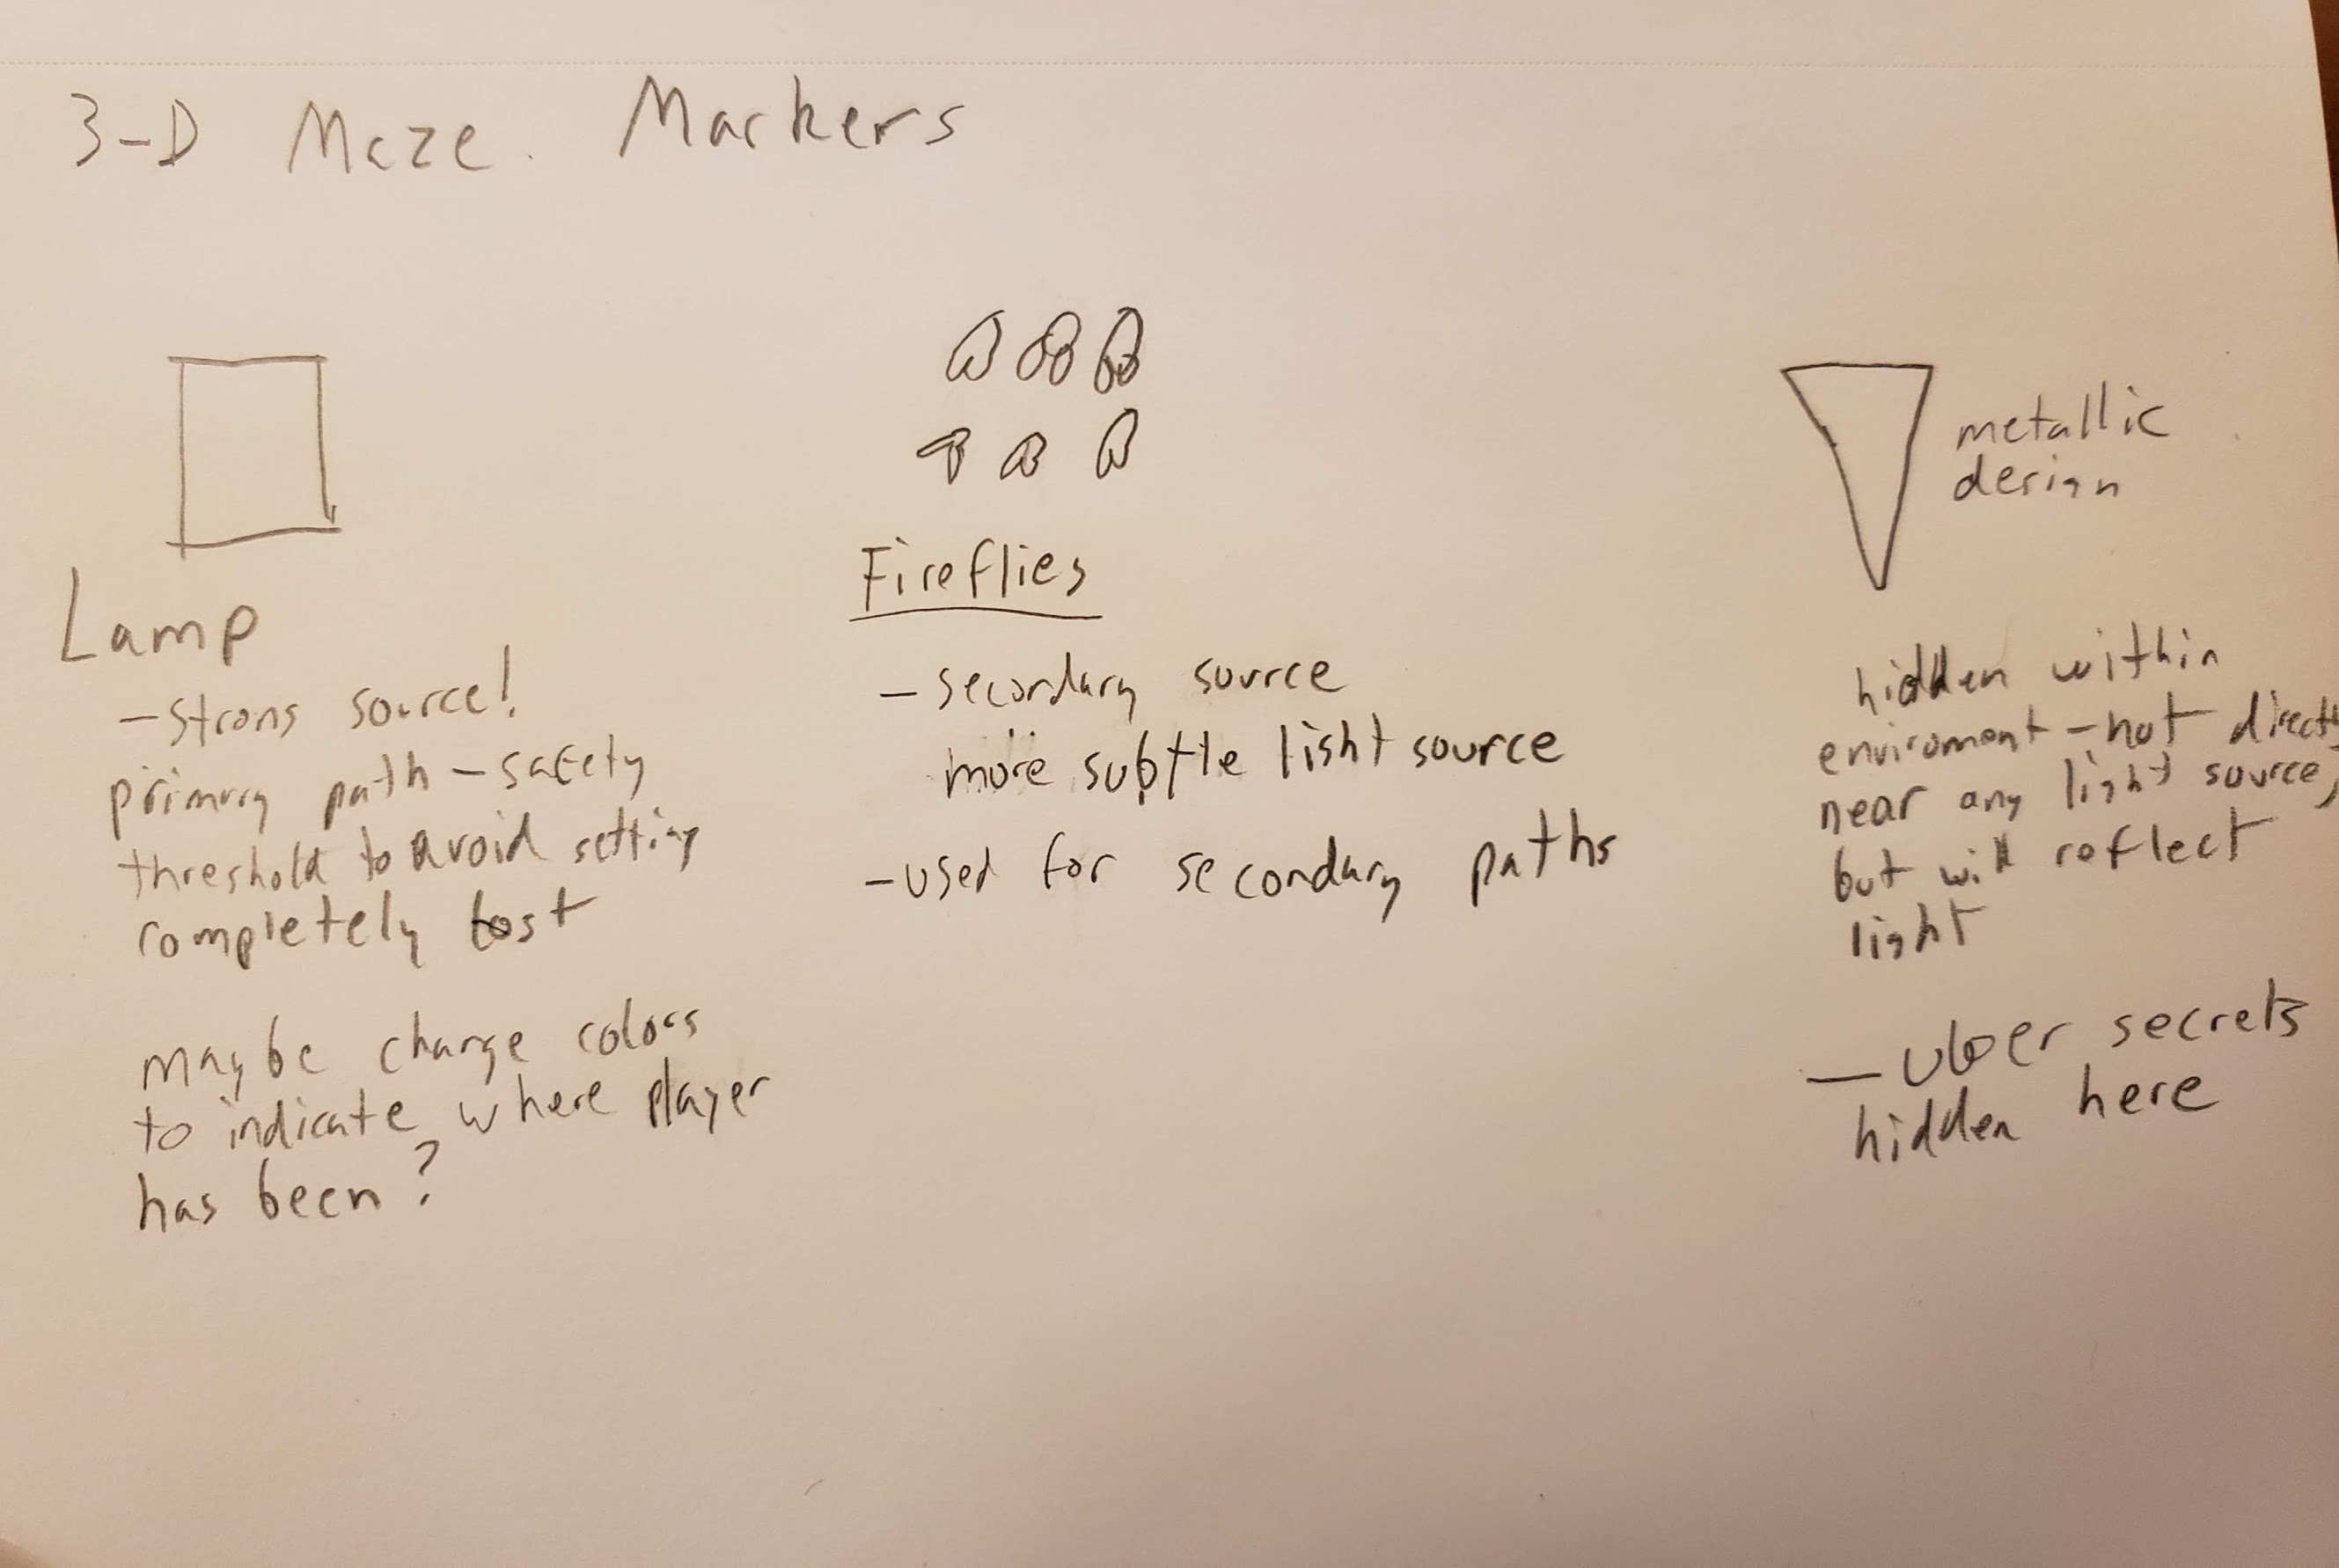 3-D Maze Markers
Lamp
- Strong source!
primary path - safety
threshold to avoid getting
completely lost
maybe change colors
to indicate where player
has been?
Fireflies
- secondary source
more subtle light source
- used for secondary paths
metallic
design
hidden within
enviroment - not directly
near any light source,
but will reflect
light
- uber secrets
hidden here